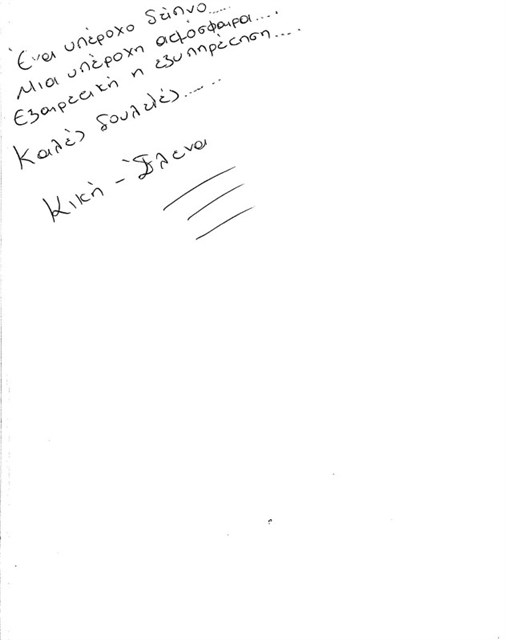 Ένα υπέροχο δείπνο......
Μια υπέροχη ατμόσφαιρα....
Εξαιρετική η εξυπηρέτηση....
Καλές δουλειές......
Κική - Έλενα